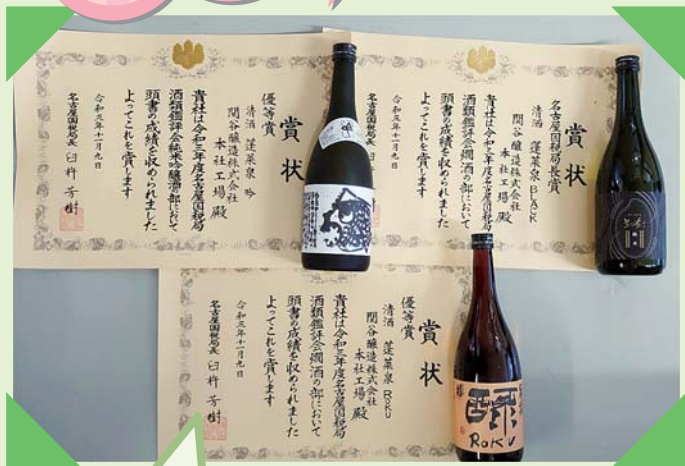 賞状
優等賞
清酒 蓬莱泉 吟
関谷醸造株式会社
本社工場 殿
貴社は令和三年度名古屋国税局
酒類鑑評会純米吟醸酒の部において
頭書の成績を収められました
よってこれを賞します
令和三年十一月九日
名古屋国税局長 臼杵 芳樹
賞状
名古屋国税局長賞
清酒 蓬莱泉 BLACK
関谷醸造株式会社
本社工場 殿
貴社は令和三年度名古屋国税局
酒類鑑評会燗酒の部において
頭書の成績を収められました
よってこれを賞します
令和三年十一月九日
名古屋国税局長
賞状
優等賞
清酒 蓬莱泉 ROKU
関谷醸造株式会社
本社工場 殿
貴社は令和三年度名古屋国税局
酒類鑑評会燗酒の部において
頭書の成績を収められました
よってこれを賞します
令和三年十一月九日
名古屋国税局長 臼杵 芳樹
吟
ROKU